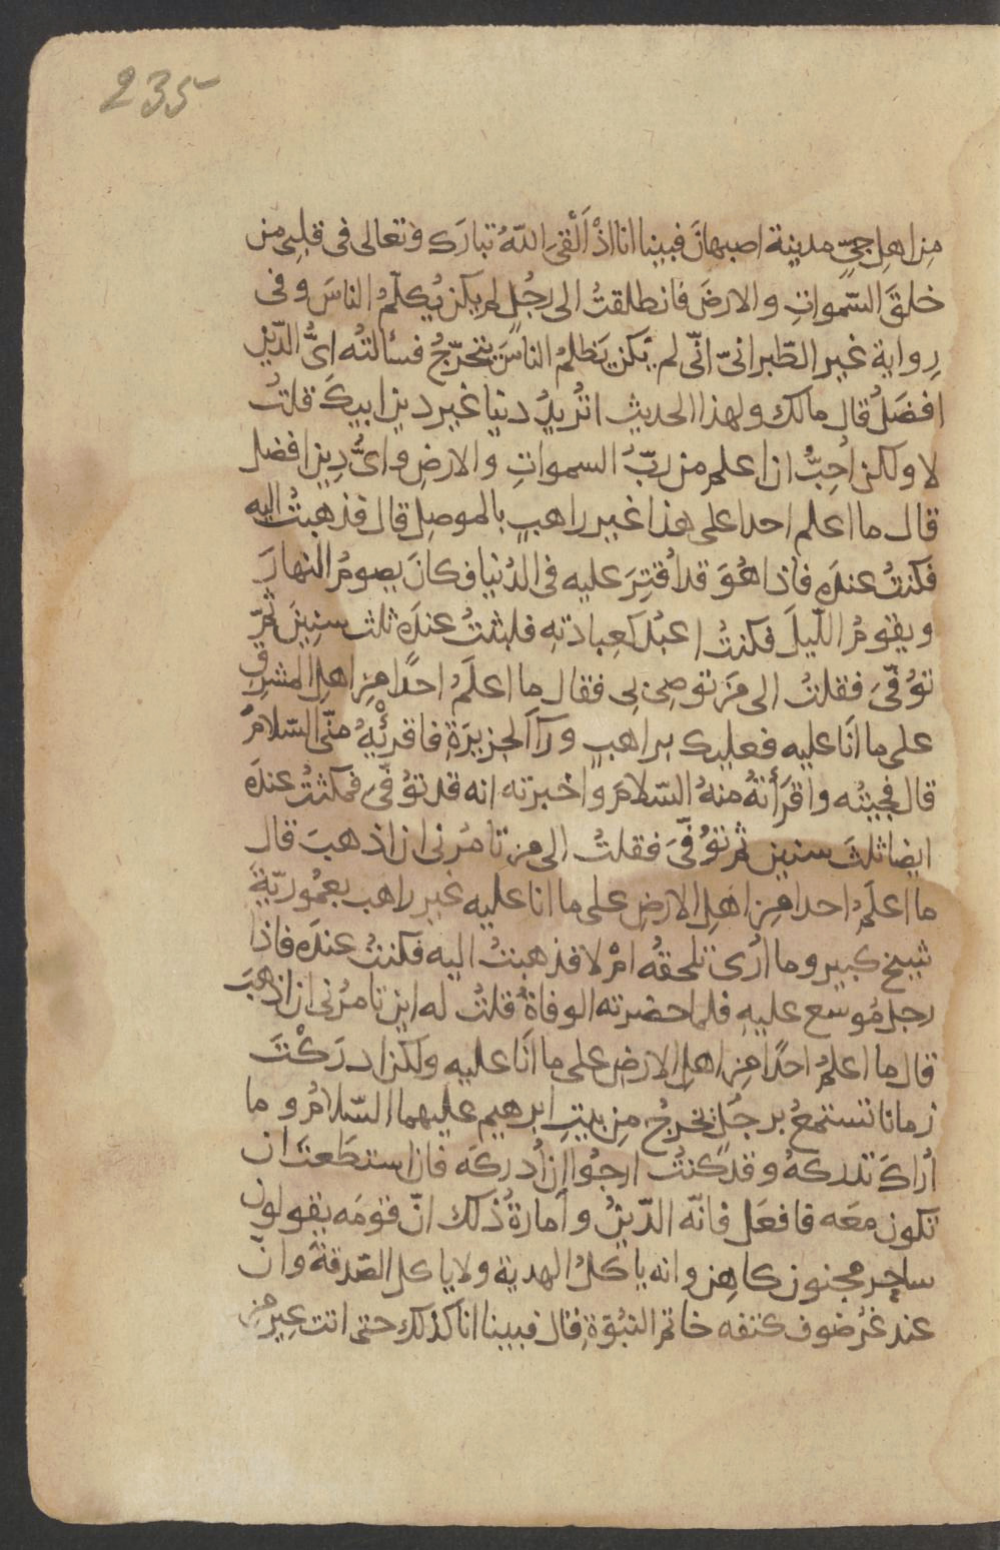 235
مِن اهلِ جيٍّ مدينة اصبهانَ فبينا انا اذْ اَلْقىَ اللّهُ تبارَك وتعالى فى قلبِى من
خلقَ السّمواتِ والارضَ فانطلقتُ الى رجُلٍ لم يكن يُكلّمُ الناسَ وفى
رِواية غير الطّبرانىّ انّى لم يَكن يَظلمُ الناسَ يتحَرّجُ فسألتُه اىُّ الدّينِ
افضَلُ قال مالك ولهذا الحديث اتُريدُ دينا غير دين ابيكَ قلتُ
لا ولكن اُحِبُّ ان اعلم من ربُّ السمواتِ والارضِ واىُّ دِينٍ افضل
قال ما اعلم احدا على هذا غير راهبٍ بالموصِلِ قال فذهبتُ اليه
فكنتُ عندَه فاذا هُوَ قد اُقتِرَ عليه فى الدُنيا فكانَ يصومُ النهارَ
ويقومُ اللّيلَ فكنتُ اعبُد كعِبادتِه فلبثتُ عندَه ثلث سنِينَ ثمّ
توُفّىَ فقلتُ الى مَن توصِى بِى فقال ما اعلَمُ احدًا مِن اهلِ المشرق
على ما انَا عليه فعليك براهبٍ ورآ الجزيرَةِ فاقرِئْهُ منّى السّلامَ
قال فجِئتُه واقرَأتهُ منهُ السّلامَ واخبرته انه قد توُفّى فمكثتُ عندَه
ايضا ثلثَ سنين ثم توُفّىَ فقلتُ الى من تامُرنى ان اذهبَ قال
ما اعلَمُ احدا مِن اهَلِ الارضِ على ما انا عليه غير راهب بعمُّوريّةَ
شيخ كبير وما اُرى تلحقهُ امْ لا فذهبتُ اليه فكنتُ عندَه فاذا
رجل مُوسع عليهِ فلما حضرته الوفاةُ قلتُ له اين تامرُنى ان اذهبَ
قال ما اعلمُ احدًا مِن اهلِ الارضِ على ما انَا عليه ولكن ادركْتَ
زمانا تستمعُ برجُلٍ يخرجُ مِن بيتِ ابرهيم عليهما السّلامُ وما
اُراكَ تدركهُ وقد كنتُ ارجُوا ان اُدركَه فان استطَعتَ ان
تكون معَه فافعَل فانّه الدّينُ وامارةُ ذلك انّ قومَه يقولون
ساحِر مجنون كاهِن وانه ياكلُ الهدية ولا ياكل الصّدقةَ وانّ
عند غُرضوف كتفه خاتم النبُوّةِ قال فبينا انا كذلك حتى اتت عِير مِن